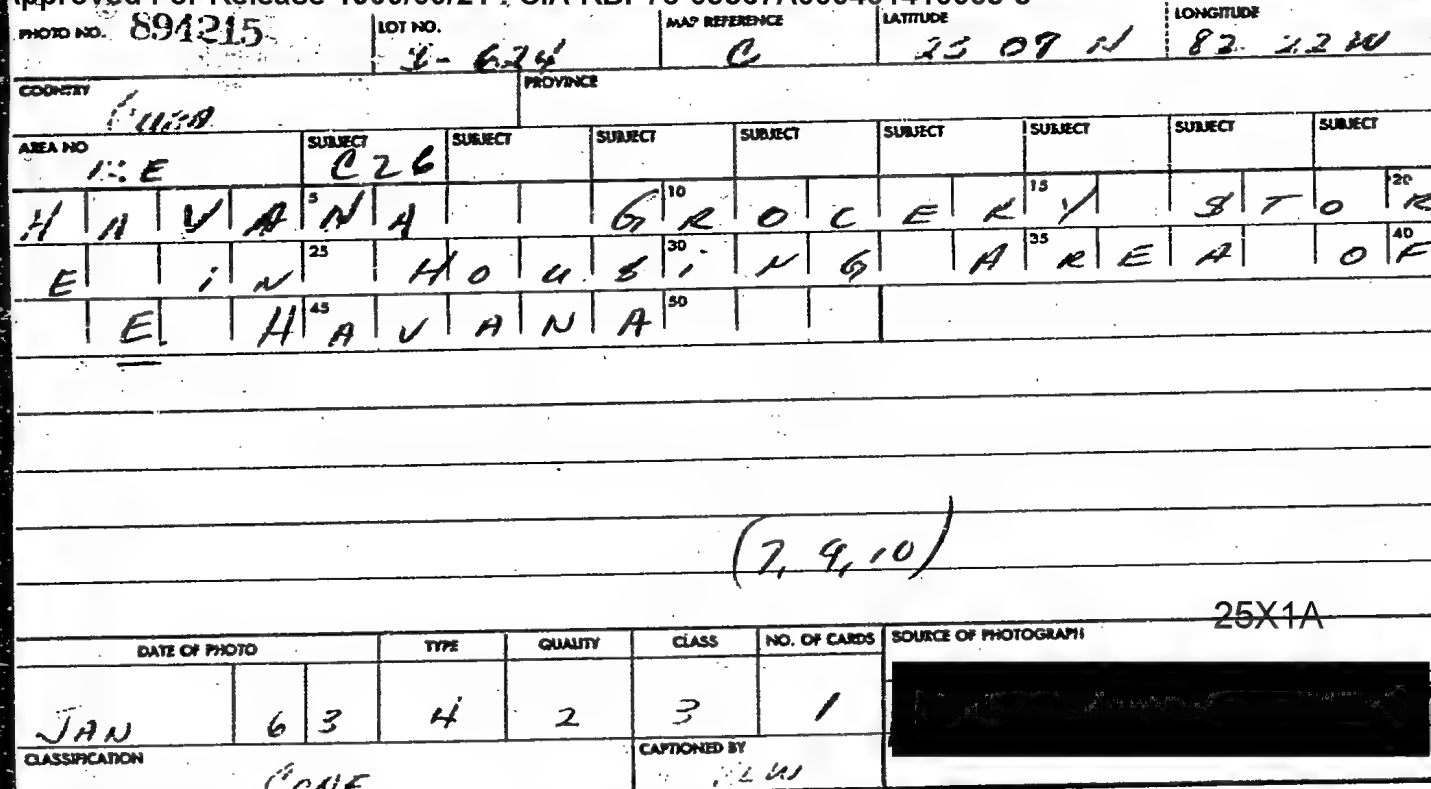 Approved For Release 1999/09/21 : CIA-RDP
PHOTO NO. 894215 LOT NO. MAP REFERENCE C LATITUDE 23 07 N LONGITUDE 82 22 W
COUNTRY CUBA PROVINCE
AREA NO E SUBJECT C26 SUBJECT SUBJECT SUBJECT SUBJECT SUBJECT SUBJECT SUBJECT
HAVANA GROCERY STOR
5 10 15 20
E iN HOUSiNG AREA OF
25 30 35 40
E. HAVANA
45 50
(7, 9, 10)
25X1A
DATE OF PHOTO TYPE QUALITY CLASS NO. OF CARDS SOURCE OF PHOTOGRAPH
JAN 63 4 2 3 1
CLASSIFICATION CONF CAPTIONED BY